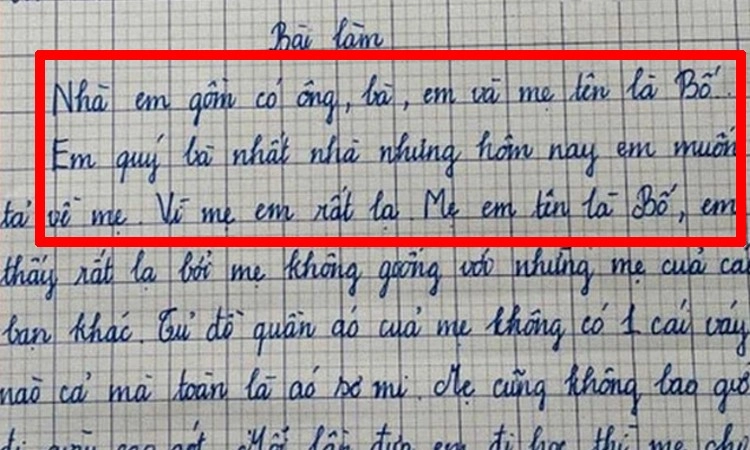 Bài làm
Nhà em gồm có ông, bà, em và mẹ tên là Bố.
Em quý bà nhất nhà nhưng hôm nay em muốn
tả về mẹ. Vì mẹ em rất lạ. Mẹ em tên là Bố, em
thấy rất lạ bởi mẹ không giống với những mẹ của các
bạn khác. Tủ đồ quần áo của mẹ không có 1 cái váy
nào cả mà toàn là áo sơ mi. Mẹ cũng không bao giờ
đi giày cao gót. Mỗi lần đưa em đi học thì mẹ